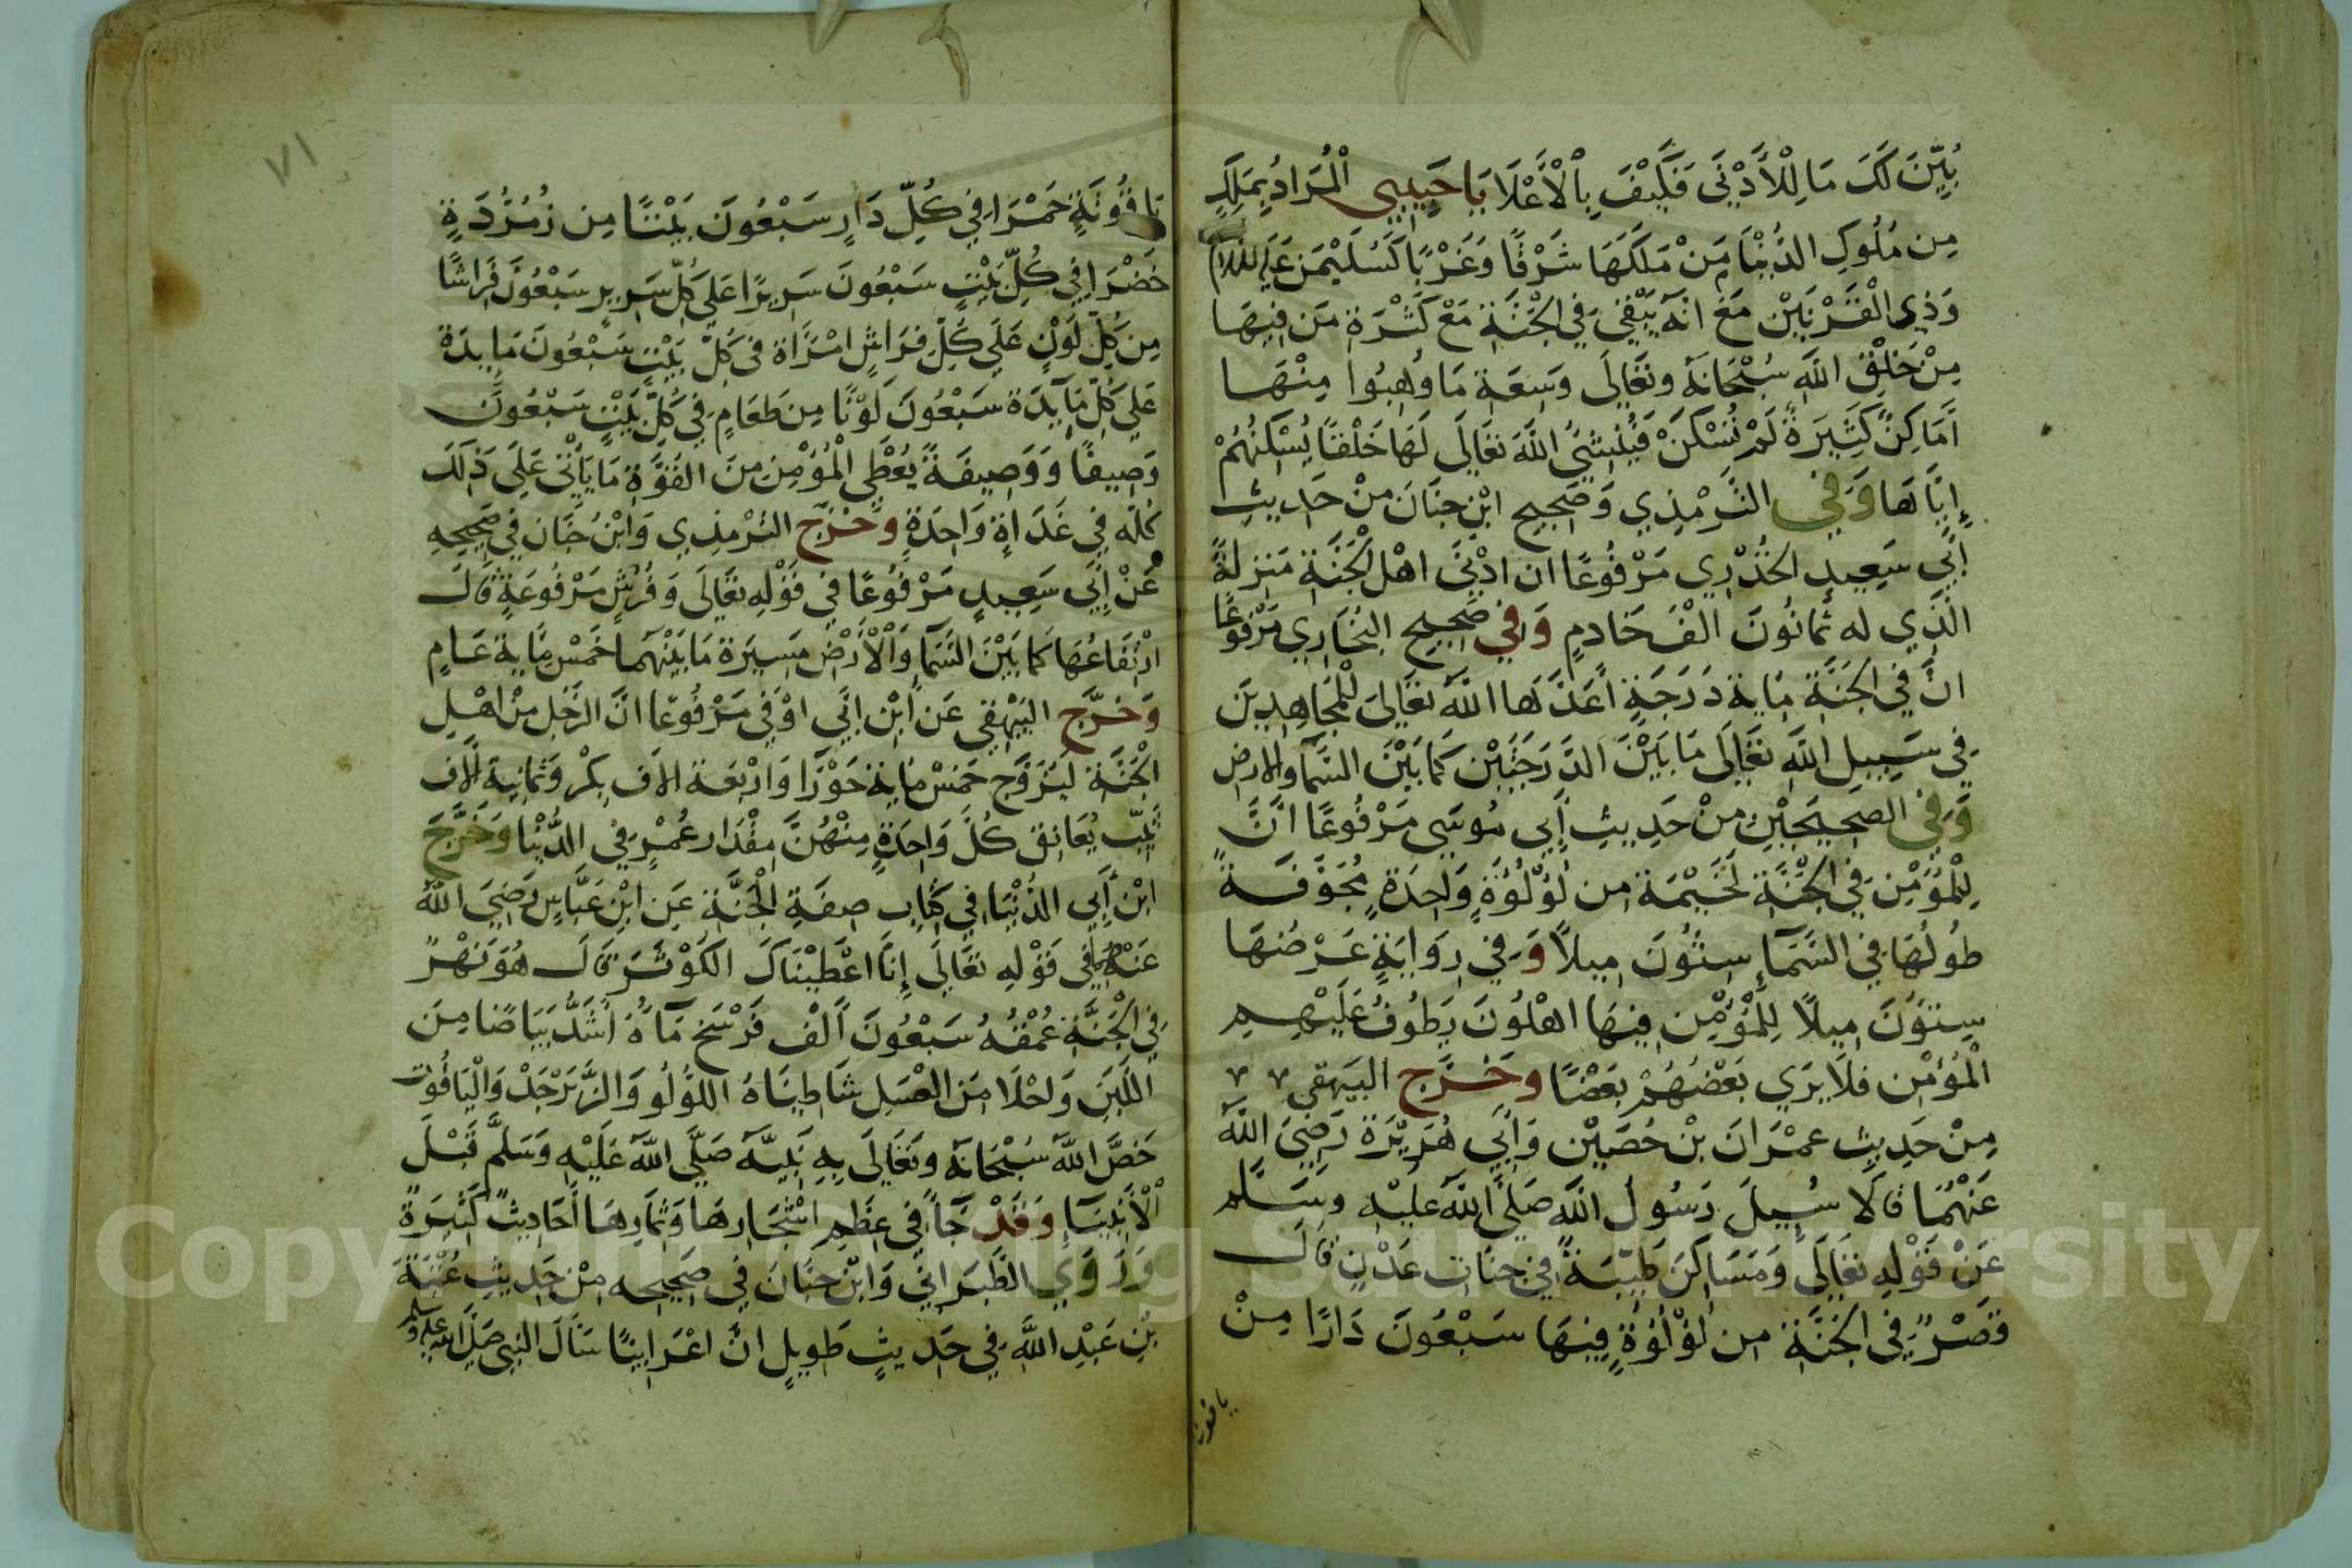 بُيِّنَ لَكَ مَا لِلْأَدْنَى فَكَيْفَ بِالْأَعْلَا يَا حَبِيبِي الْمُرَادُ بِمَلِكٍ
مِن مُلُوكِ الدُّنْيَا مَنْ مَلَكَهَا شَرْقًا وَغَرْبًا كَسُلَيْمَنَ عَلَيْهِ السَّلَام
وَذِي الْقَرْنَيْنِ مَعَ انَّهُ يَبْقَى فِي الْجَنَّةِ مَعْ كَثْرَةِ مَن فِيهَا
مِنْ خَلْقِ اللَّهِ سُبْحَانَهُ وَتَعَالَى وَسِعَةِ مَا وُهِبُوا مِنْهَا
أَمَاكِنُ كَثِيرَةٌ لَمْ تُسْكَنْ فَيُنْشِئُ اللَّهُ تَعَالَى لَهَا خَلْقًا يُسْكِنُهُمْ
إِيَّاهَا وَفِي التِّرْمِذِي وَصَحِيحِ ابْنِ حِبَّانَ مِنْ حَدِيثِ
أَبِي سَعِيدٍ الْخُدْرِي مَرْفُوعًا ان ادْنَى اهْلِ الْجَنَّةِ مَنْزِلَةً
الَّذِي له ثَمَانُونَ الْفَ خَادِمٍ وَفِي صَحِيحِ الْبُخَارِي مَرْفُوعًا
انَّ فِي الْجَنَّةِ مِايَةَ دَرَجَةٍ أَعَدَّهَا اللَّهُ تَعَالَى لِلْمُجَاهِدِينَ
فِي سَبِيلِ اللَّهِ تَعَالَى مَا بَيْنَ الدَّرَجَتَيْنِ كَمَا بَيْنَ السَّمَا وَالارض
وَفِي الصَّحِيحَيْنِ مِنْ حَدِيثِ أَبِي مُوسَى مَرْفُوعًا انَّ
لِلْمُؤْمِنِ فِي الْجَنَّةِ لَخَيْمَةً مِن لُؤْلُؤَةٍ وَاحِدَةٍ مُجَوَّفَةً
طُولُهَا فِي السَّمَاءِ سِتُّونَ مِيلًا وَفِي رِوَايَةٍ عَرْضُهَا
سِتُّونَ مِيلًا لِلْمُؤْمِنِ فِيهَا اهْلُونَ يَطُوفُ عَلَيْهِمِ
الْمُؤْمِنُ فَلَا يَرَى بَعْضُهُمْ بَعْضًا وَخَرَّجَ الْبَيْهَقِي
مِنْ حَدِيثِ عِمْرَانَ بْنِ حُصَيْنٍ وَأَبِي هُرَيْرَةَ رَضِيَ اللَّهُ
عَنْهُمَا قَالَا سُيِلَ رَسُولُ اللَّهِ صَلَّى اللَّهُ عَلَيْهِ وَسَلَّم
عَنْ قَوْلِهِ تَعَالَى وَمَسَاكِنَ طَيِّبَةً فِي جَنَّاتِ عَدْنٍ قَالَ
قَصْرٌ فِي الْجَنَّةِ مِن لُؤْلُؤَةٍ فِيهَا سَبْعُونَ دَارًا مِنْ
ياقوتة
٧١
يَاقُوتَةٍ حَمْرَا فِي كُلِّ دَارٍ سَبْعُونَ بَيْتًا مِن زُمُرُّدَةٍ
خَضْرَا فِي كُلِّ بَيْتٍ سَبْعُونَ سَرِيرًا عَلَى كُلِّ سَرِيرٍ سَبْعُونَ فِرَاشًا
مِن كُلِّ لَوْنٍ عَلَى كُلِّ فِرَاشٍ امْرَأَة فِي كُلِّ بَيْتٍ سَبْعُونَ مَايِدَة
عَلَى كُلِّ مَايِدَة سَبْعُونَ لَوْنًا مِن طَعَامٍ فِي كُلِّ بَيْتٍ سَبْعُونَ
وَصِيفًا وَوَصِيفَةً يُعْطَى الْمُؤْمِنُ مِنَ الْقُوَّةِ مَا يَأْتِي عَلَى ذَلِكَ
كُلِّهِ فِي غَدَاةٍ وَاحِدَةٍ وَخَرَّجَ التِّرْمِذِي وَابْنُ حِبَّان فِي صَحِيحِهِ
عَنْ أَبِي سَعِيدٍ مَرْفُوعًا فِي قَوْلِهِ تَعَالَى وَفُرُشٍ مَرْفُوعَةٍ قَالَ
ارْتِفَاعُهَا كَمَا بَيْنَ السَّمَا وَالْأَرْضِ مَسِيرَة مَا بَيْنَهُمَا خَمْسُ مِايَةِ عَامٍ
وَخَرَّجَ الْبَيْهَقِي عَن ابْنِ ابِي اوْفَى مَرْفُوعًا انَّ الرَّجُلَ مِنْ اهْلِ
الْجَنَّةِ لَيُزَوَّج خَمْسَ مِايَةِ حَوْرَا وَارْبَعَةَ الَاف بِكْر وَثَمَانِيَةَ الَاف
ثَيِّب يُعَانِقُ كُلَّ وَاحِدَةٍ مِنْهُنَّ مِقْدَار عُمْرِهِ فِي الدُّنْيَا وَخَرَّجَ
ابْن أَبِي الدُّنْيَا فِي كِتَابِ صِفَةِ الْجَنَّةِ عَنِ ابْنِ عَبَّاسٍ رَضِيَ اللَّهُ
عَنْهُمَا فِي قَوْلِهِ تَعَالَى إِنَّا اعْطَيْنَاكَ الْكَوْثَرَ قَالَ هُوَ نَهْرٌ
فِي الْجَنَّةِ عُمْقُهُ سَبْعُونَ أَلْف فَرْسَخ مَآؤُهُ أَشَدُّ بَيَاضًا مِنَ
اللَّبَنِ وَاحْلَا مِنَ الْعَسَلِ شَاطِيَاهُ اللُّؤْلُو وَالزَّبَرْجَدْ وَالْيَاقُوت
خَصَّ اللَّهُ سُبْحَانَهُ وَتَعَالَى بِهِ نَبِيَّهُ صَلَّى اللَّهُ عَلَيْهِ وَسَلَّمَ قَبْلَ
الْأَنْبِيَا وَقَدْ جَاءَ فِي عِظَمِ اشْجَارِهَا وَثِمَارِهَا أَحَادِيثُ كَثِيرَةٌ
وَرَوَى الطَّبَرَانِي وَابْنُ حِبَّانَ فِي صَحِيحِهِ مِنْ حَدِيثِ عُتْبَةَ
بْنِ عَبْدِ اللَّهِ فِي حَدِيثٍ طَوِيلٍ انَّ اعْرَابِيًّا سَأَلَ النَّبِي صَلَّى اللَّهُ عَلَيْهِ وَسَلَّم
Copyright © King Saud University